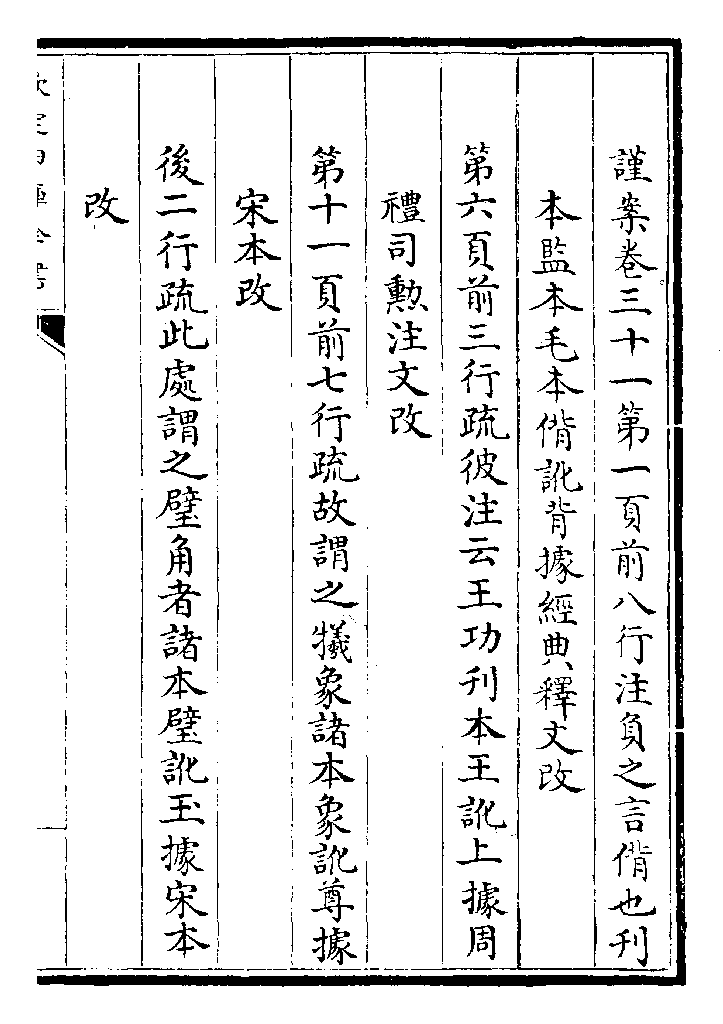 謹案卷三十一第一頁前八行注負之言偝也刊
本監本毛本偝訛背據經典釋文改
第六頁前三行疏彼注云王功刊本王訛上據周
禮司勲注文改
第十一頁前七行疏故謂之犧象諸本象訛尊據
宋本改
後二行疏此處謂之璧角者諸本璧訛玉據宋本
改
欽定四庫全書